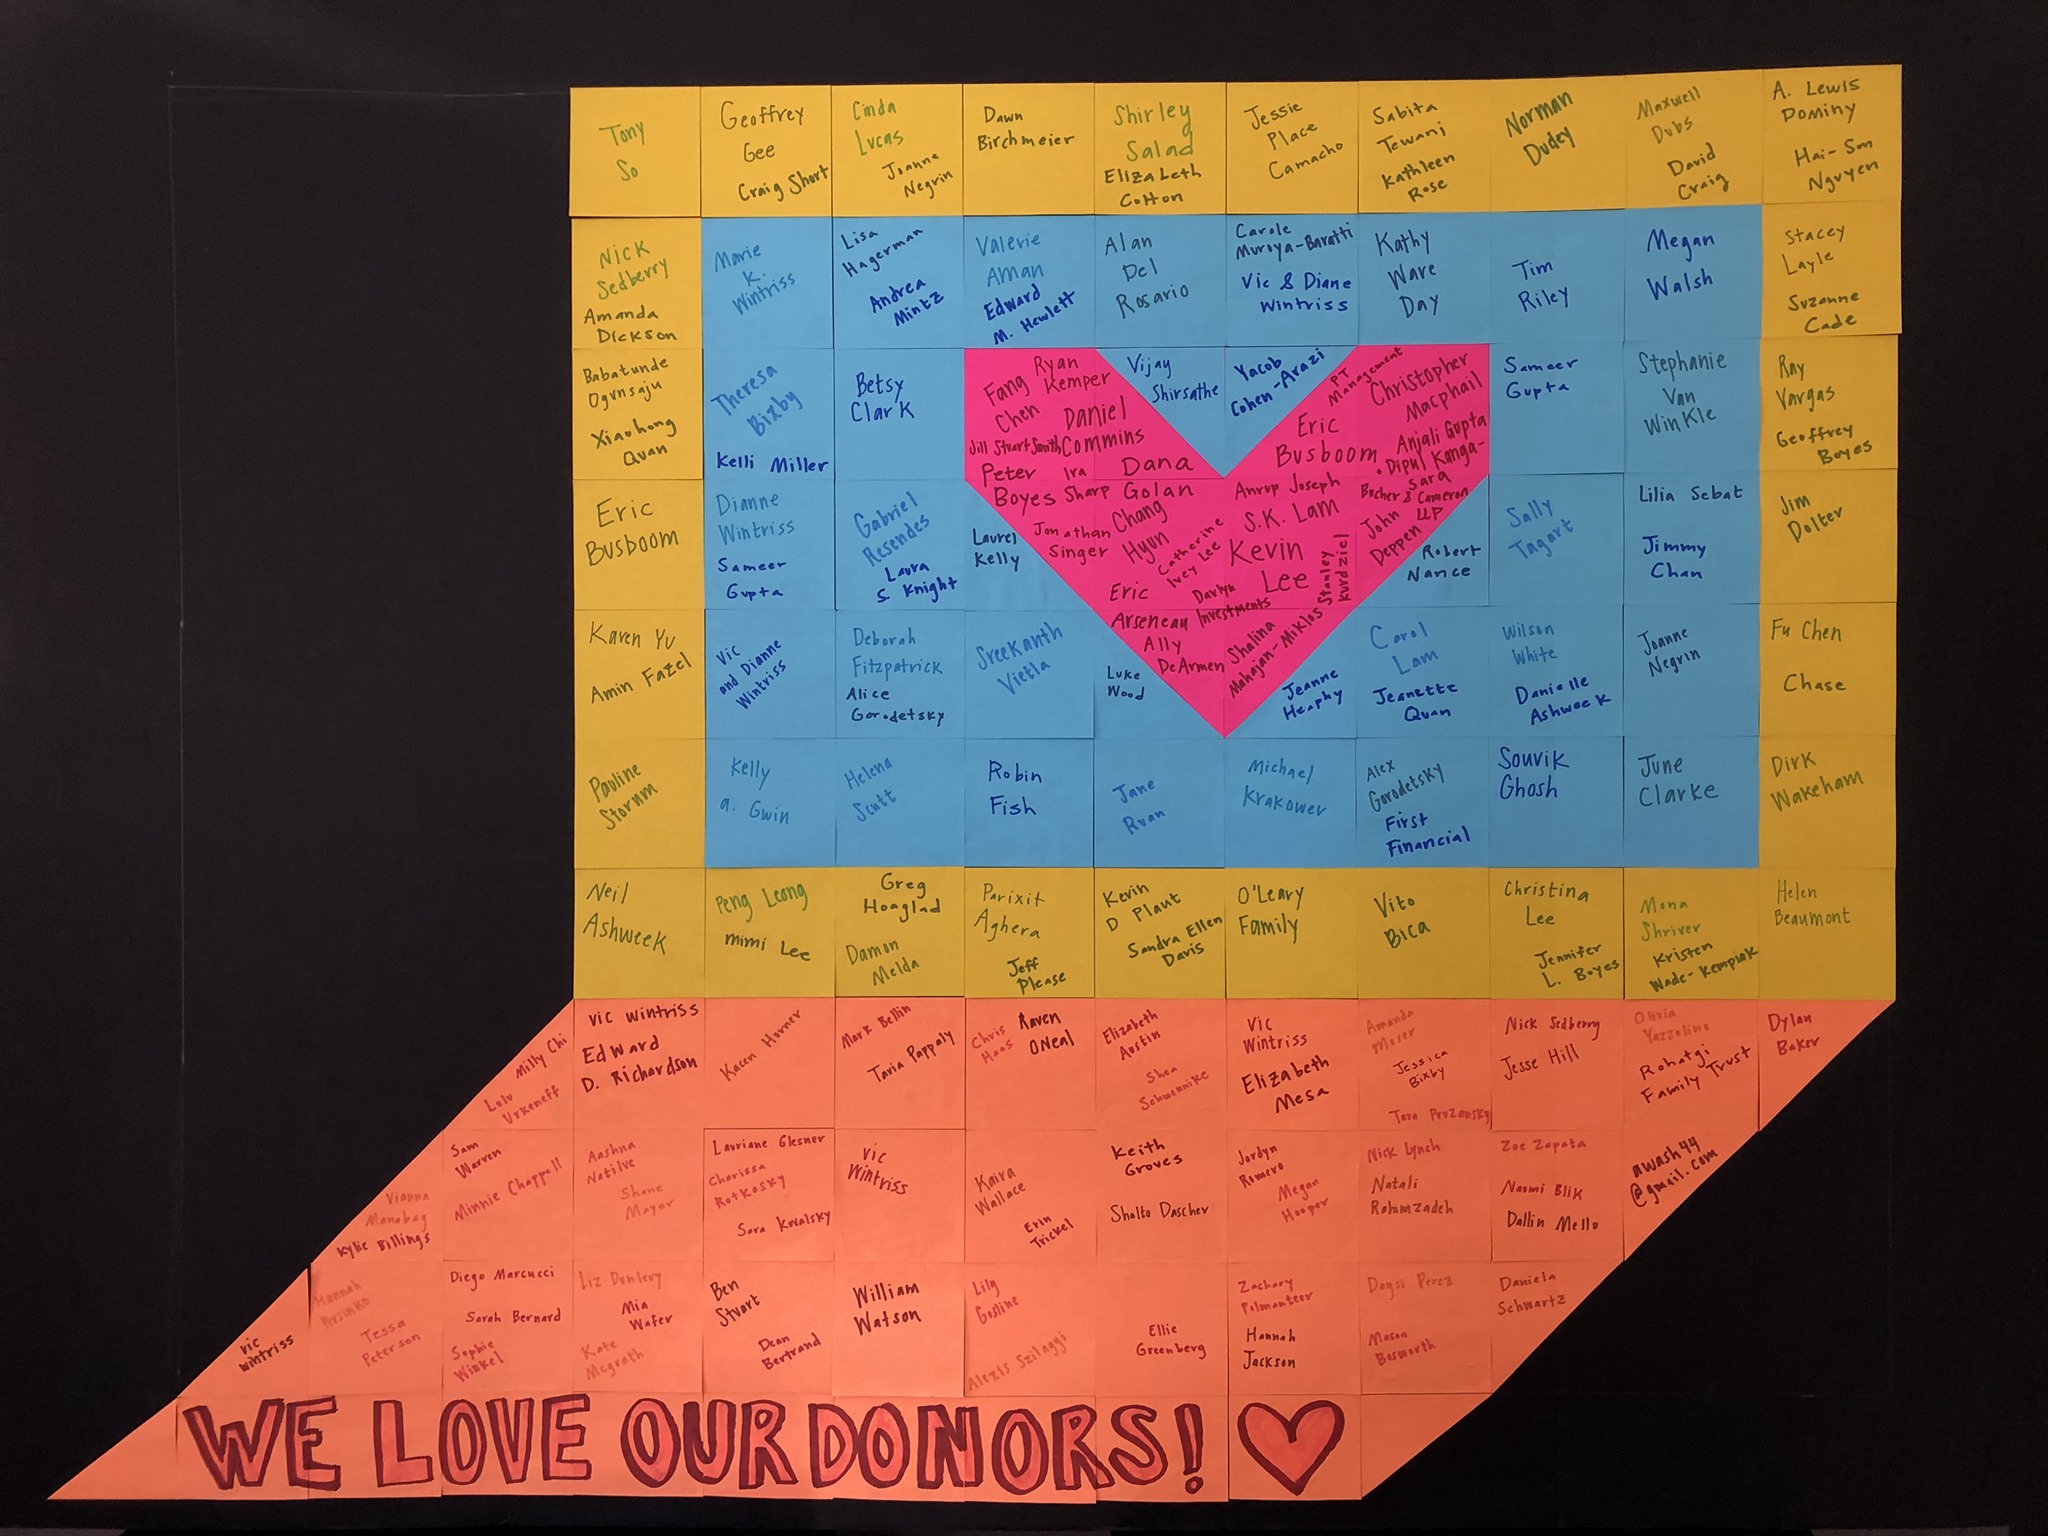 Tony
So
Geoffrey
Gee
Craig Short
Cinda
Lucas
Joanne
Negrin
Dawn
Birchmeier
Shirley
Salad
Elizabeth
Cotton
Jessie
Place
Camacho
Sabita
Tewani
Kathleen
Rose
Norman
Dudey
Maxwell
Dubs
David
Craig
A. Lewis
Dominy
Hai-Son
Nguyen
Nick
Sedberry
Amanda
Dickson
Marie
K.
Wintriss
Lisa
Hagerman
Andrea
Mintz
Valerie
Aman
Edward
M. Hewlett
Alan
Del
Rosario
Carole
Muroya-Baratti
Vic & Diane
Wintriss
Kathy
Ware
Day
Tim
Riley
Megan
Walsh
Stacey
Layle
Suzanne
Cade
Babatunde
Ogunsaju
Xiaohong
Quan
Theresa
Bixby
Kelli Miller
Betsy
Clark
Fang
Chen
Ryan
Kemper
Daniel
Commins
Jill Stuart Smith
Peter
Boyes
Ira
Sharp
Dana
Golan
Vijay
Shirsathe
Yacob
Cohen-Arazi
PT
Management
Christopher
Macphail
Eric
Busboom
Anjali Gupta
+ Dipul Kanga-
sara
Sameer
Gupta
Stephanie
Van
Winkle
Ray
Vargas
Geoffrey
Boyes
Eric
Busboom
Dianne
Wintriss
Sameer
Gupta
Gabriel
Resendes
Laura
S. Knight
Laurel
Kelly
Jonathan
Singer
Chang
Hyun
Catherine
Ivey Lee
Eric
Arseneau
Darlyn
Investments
Anrup Joseph
S.K. Lam
Kevin
Lee
Stanley
Kurdziel
Bucher & Cameron
LLP
John
Deppen
Robert
Nance
Sally
Tagart
Lilia Sebat
Jimmy
Chan
Jim
Dolter
Karen Yu
Amin Fazel
Vic
and Dianne
Wintriss
Deborah
Fitzpatrick
Alice
Gorodetsky
Sreekanth
Vietla
Luke
Wood
Ally
DeArmen
Shalina
Mahajan-Miklos
Jeanne
Heaphy
Carol
Lam
Jeanette
Quan
Wilson
White
Danielle
Ashweek
Joanne
Negrin
Fu Chen
Chase
Pauline
Stornm
Kelly
a. Gwin
Helena
Scutt
Robin
Fish
Jane
Ruan
Michael
Krakower
Alex
Gorodetsky
First
Financial
Souvik
Ghosh
June
Clarke
Dirk
Wakeham
Neil
Ashweek
Peng Leong
Mimi Lee
Greg
Hoaglad
Damon
Melda
Parixit
Aghera
Jeff
Please
Kevin
D Plaut
Sandra Ellen
Davis
O'Leary
Family
Vito
Bica
Christina
Lee
Jennifer
L. Boyes
Mona
Shriver
Kristen
Wade-Kempiak
Helen
Beaumont
Milly Chi
Lulu
Urkeneff
Vic Wintriss
Edward
D. Richardson
Kacen Horner
Mark Bellin
Taria Pappaly
Chris
Haas
Raven
ONeal
Elizabeth
Austin
Shea
Schwennike
Vic
Wintriss
Elizabeth
Mesa
Amanda
Moser
Jessica
Bixby
Tara Pruzansky
Nick Sedberry
Jesse Hill
Olivia
Yazzolino
Rohatgi
Family Trust
Dylan
Baker
Vianna
Manabag
Kylie Billings
Sam
Warren
Minnie Chappell
Aashna
Natilve
Shane
Mayor
Lauriane Glesner
Charissa
Rotkosky
Sara Kowalsky
Vic
Wintriss
Kaira
Wallace
Erin
Trickel
Keith
Groves
Shalto Dascher
Jordyn
Romero
Megan
Hooper
Nick Lynch
Natali
Rahimzadeh
Zoe Zapata
Naomi Blik
Dallin Mello
awash44
@gmail.com
Vic
Wintriss
Hannah
Persinko
Tessa
Peterson
Diego Marcucci
Sarah Bernard
Sophie
Winkel
Liz Dunlevy
Mia
Wafer
Kate
Mcgrath
Ben
Stuart
Dean
Bertrand
William
Watson
Lily
Gosline
Alexis Szilagyi
Ellie
Greenberg
Zachary
Polmanteer
Hannah
Jackson
Daysi Perez
Mason
Bosworth
Daniela
Schwartz
WE LOVE OUR DONORS!